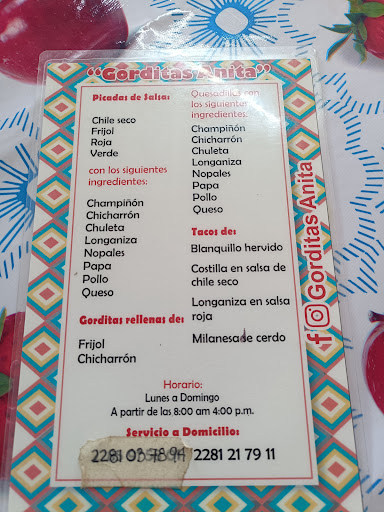 “Gorditas Anita”
Picadas de Salsa:
Chile seco
Frijol
Roja
Verde
con los siguientes
ingredientes:
Champiñón
Chicharrón
Chuleta
Longaniza
Nopales
Papa
Pollo
Queso
Gorditas rellenas de:
Frijol
Chicharrón
Quesadillas con
los siguientes
ingredientes:
Champiñón
Chicharrón
Chuleta
Longaniza
Nopales
Papa
Pollo
Queso
Tacos de:
Blanquillo hervido
Costilla en salsa de
chile seco
Longaniza en salsa
roja
Milanesa de cerdo
Horario:
Lunes a Domingo
A partir de las 8:00 am 4:00 p.m.
Servicio a Domicilio:
2281 21 79 11
Gorditas Anita